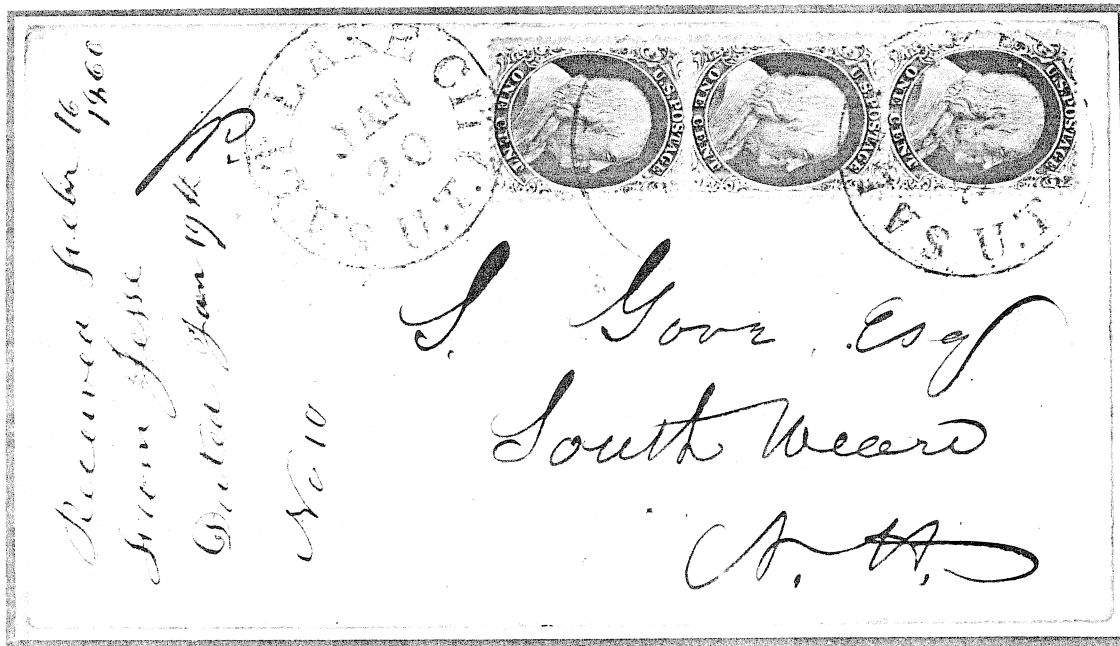 Received Feby 16
1860
from Jesse
Dated Jan 19th
No 10
SALT LAKE CITY
JAN
20
U.T.
ONE CENT U.S. POSTAGE
ONE CENT U.S. POSTAGE
ONE CENT U.S. POSTAGE
U.T.
S. Gove, Esq
South Weare
N. H.